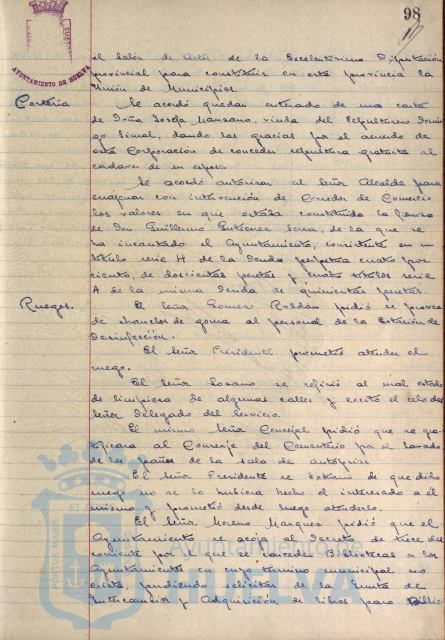 98
AYUNTAMIENTO DE HUELVA
el Salón de Actos de la Excelentísima Diputación
provincial para constituir en esta provincia la
Unión de Municipios.
Cortesía
Se acordó quedar enterado de una carta
de Doña Josefa Manzano, viuda del Sepulturero Domin
go Simal, dando las gracias por el acuerdo de
esta Corporación de conceder sepultura gratuita al
cadáver de su esposo.
Se acordó autorizar al Señor Alcalde para
enajenar con intervención de Corredor de Comercio
los valores en que estaba constituida la fianza
de Don Guillermo Gutierrez Serra, de la que se
ha incautado el Ayuntamiento, consistente en un
título serie H de la Deuda perpétua cuatro por
ciento, de doscientas pesetas y cuatro títulos serie
A de la misma Deuda de quinientas pesetas.
Ruegos.
El Señor Gomez Roldán pidió se provea
de chanclos de goma al personal de la Estación de
Desinfección.
El Señor Presidente prometió atender el
ruego.
El Señor Lozano se refirió al mal estado
de limpieza de algunas calles y excitó el celo del
Señor Delegado del Servicio.
El mismo Señor Concejal pidió que se gra-
tificara al Conserje del Cementerio por el lavado
de los paños de la sala de autopsias
El Señor Presidente se extrañó de que dicho
ruego no se lo hubiera hecho el interesado a él
mismo y prometió desde luego atenderlo.
El Señor Moreno Marquez pidió que el
Ayuntamiento se acoja al Decreto de trece del
corriente por el que se conceden Bibliotecas a los
Ayuntamientos en cuyo término municipal no
exista, pudiendo solicitar de la Junta de
Intercambio y Adquisición de libros para Biblio
Ayuntamiento de
HUELVA
PORTUS MARIS ET